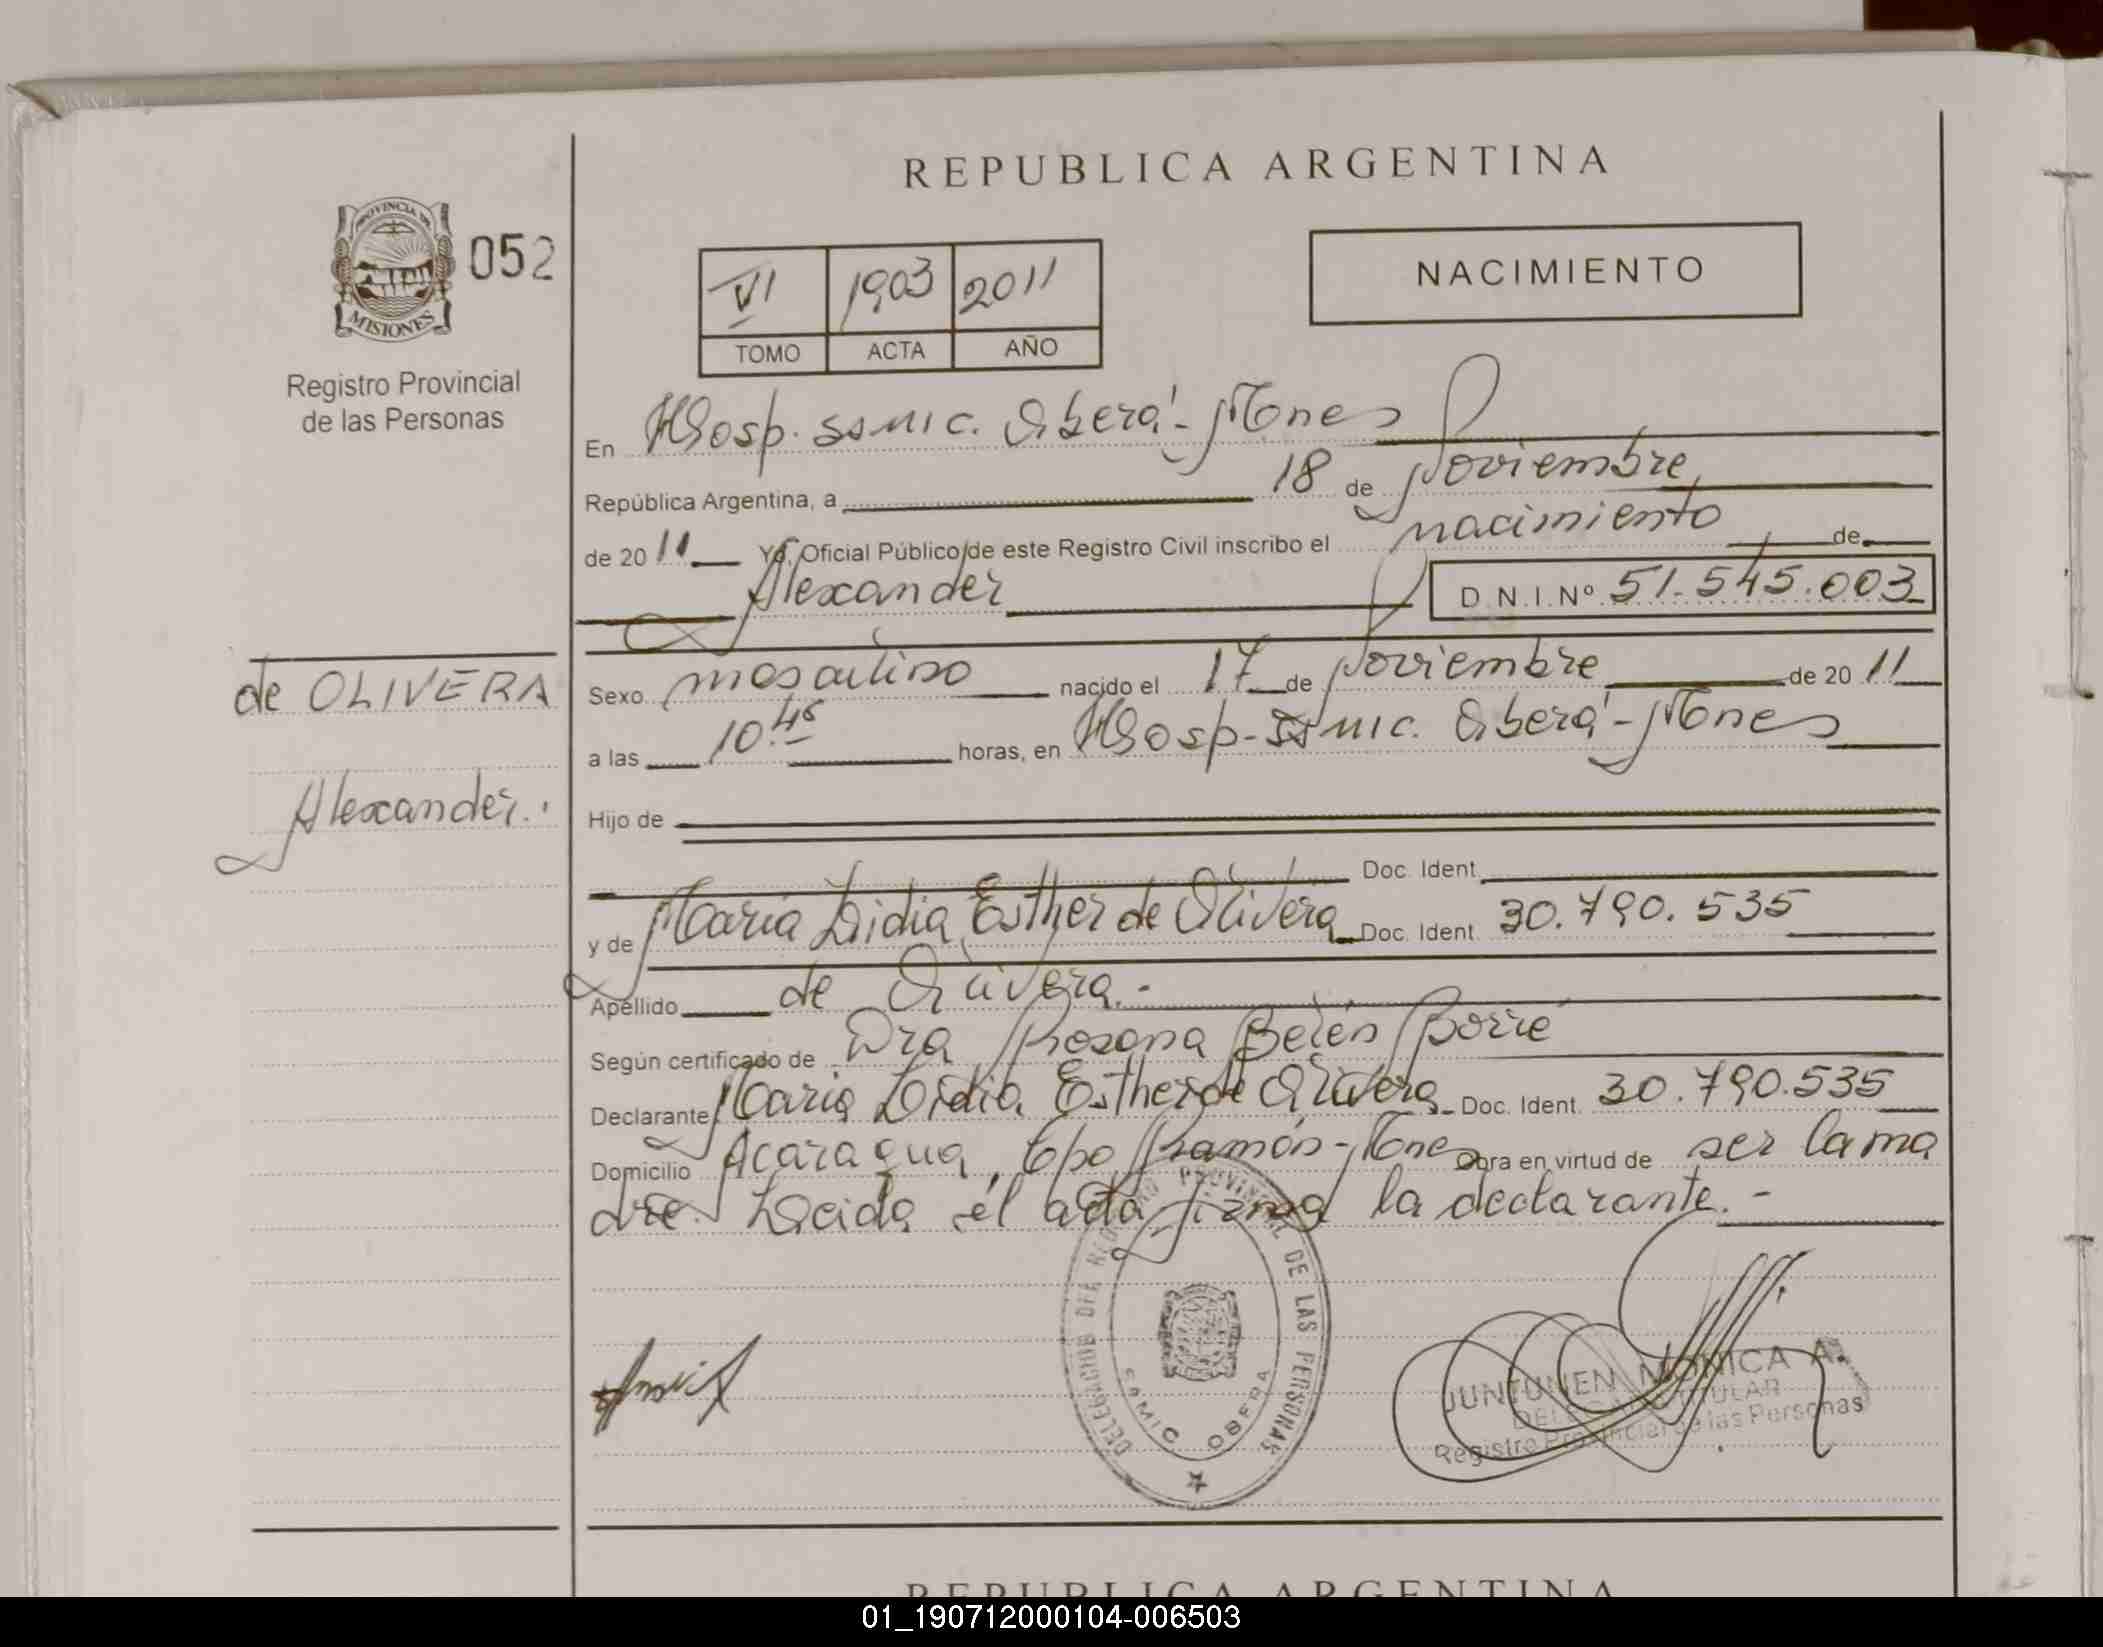 REPUBLICA ARGENTINA
PROVINCIA DE
MISIONES
052
Registro Provincial
de las Personas
VI 1903 2011
TOMO ACTA AÑO
NACIMIENTO
En Hosp. SAMIC. Oberá - Mones
República Argentina, a 18 de Noviembre
de 2011 Yo, Oficial Público de este Registro Civil inscribo el nacimiento de
Alexander D.N.I.Nº 51.545.003
de OLIVERA
Alexander.
Sexo masculino nacido el 17 de Noviembre de 2011
a las 10.45 horas, en Hosp-SAMIC. Oberá - Mones
Hijo de
Doc. Ident.
y de María Lidia Esther de Olivera Doc. Ident. 30.790.535
Apellido de Olivera.-
Según certificado de Dra Roxana Belén Borré
Declarante María Lidia Esther de Olivera Doc. Ident. 30.790.535
Domicilio Acaragua, Cpo Ramón - Mones Obra en virtud de ser la ma
dre. Leida el acta firma la declarante.-
DELEGACION DEL REGISTRO PROVINCIAL DE LAS PERSONAS
SAMIC OBERA
JUNTUNEN MONICA A.
DELEGADA TITULAR
Registro Provincial de las Personas
REPUBLICA ARGENTINA
01_190712000104-006503